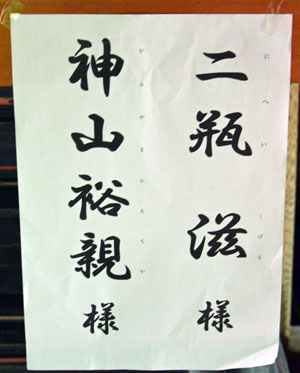 二瓶 滋 様
にへい しげる
神山裕親 様
かみやまひろちか